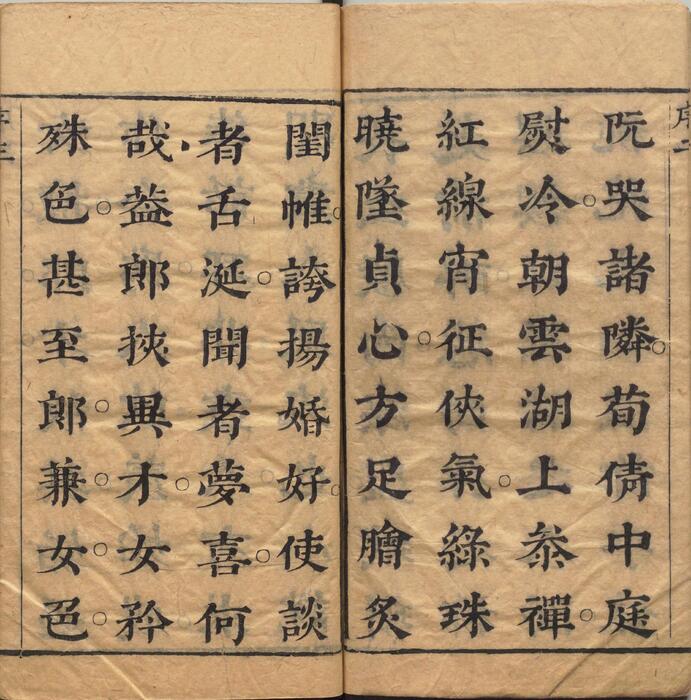 阮哭諸隣荀倩中庭
熨冷朝雲湖上叅禪
紅線宵征俠氣綠珠
曉墜貞心方足膾炙
閨帷誇揚婚好使談
者舌涎聞者夢喜何
哉葢郎挾異才女矜
殊色甚至郎兼女色